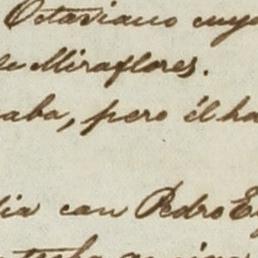 Octaviano cuya
de Miraflores.
aba, pero él ha
dia con Pedro E